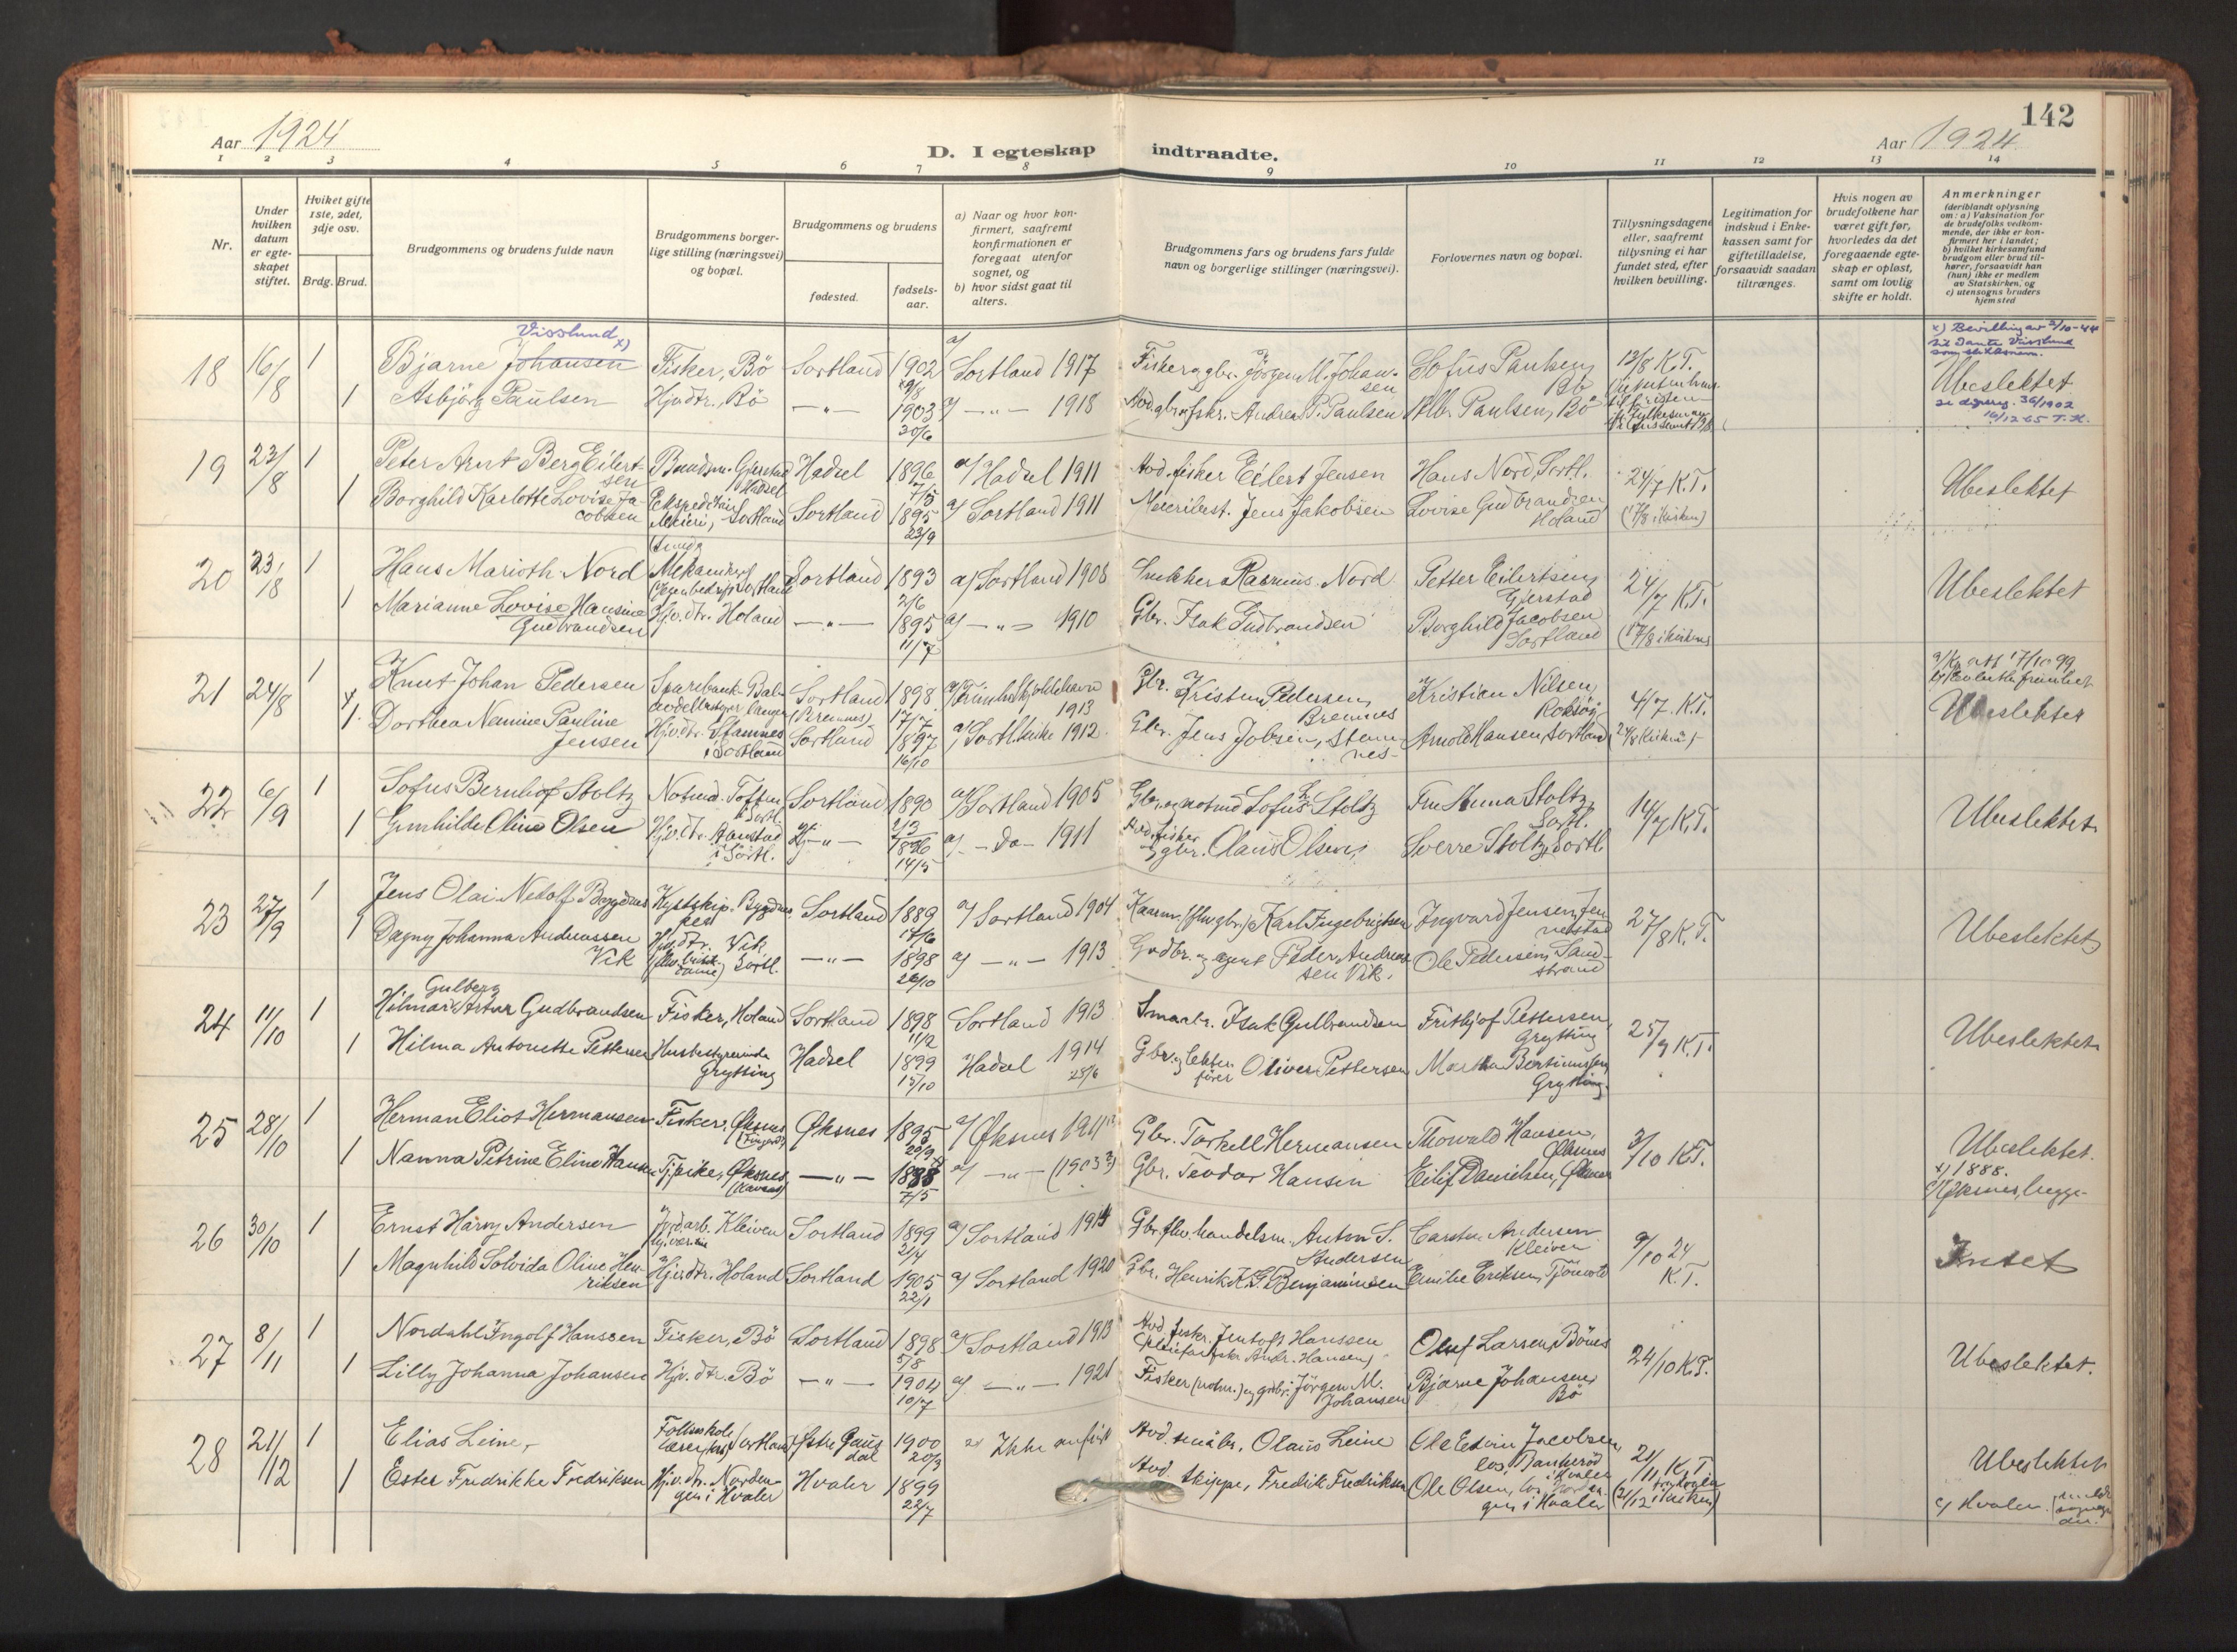 142
Aar 1924
D. I egteskap indtraadte.
Aar 1924
1 2 3 4 5 6 7 8 9 10 11 12 13 14
Nr.
Under hvilken datum er egteskapet stiftet.
Hvilket gifte 1ste, 2det, 3dje osv.
Brdg. Brud.
Brudgommens og brudens fulde navn
Brudgommens borgerlige stilling (næringsvei) og bopæl.
Brudgommens og brudens
fødested.
fødselsaar.
a) Naar og hvor konfirmert, saafremt konfirmationen er foregaat utenfor sognet, og
b) hvor sidst gaat til alters.
Brudgommens fars og brudens fars fulde navn og borgerlige stillinger (næringsvei).
Forlovernes navn og bopæl.
Tillysningsdagene eller, saafremt tillysning ei har fundet sted, efter hvilken bevilling.
Legitimation for indskud i Enkekassen samt for giftetilladelse, forsaavidt saadan tiltrænges.
Hvis nogen av brudefolkene har været gift før, hvorledes da det foregaaende egteskap er opløst, samt om lovlig skifte er holdt.
Anmerkninger
(deriblandt oplysning om: a) Vaksination for de brudefolks vedkommende, der ikke er konfirmert her i landet;
b) hvilket kirkesamfund brudgom eller brud tilhører, forsaavidt han (hun) ikke er medlem av Statskirken, og
c) utensogns bruders hjemsted
18 16/8 1 Visslund x)
Bjarne Johansen Fisker, Bö Sortland 1902 29/8 a/ Sortland 1917 Fisker og gbr. Jörgen M. Johansen Sofus Paulsen, Bö 12/8 K.T. x) Bevilling av 2/10-44
1 Asbjörg Paulsen Hjv.dtr., Bö —„— 1903 30/6 a/ —„— 1918 Avd. gbr. og fskr. Andreas P. Paulsen Alb. Paulsen, Bö Ubeslektet
se dpreg. 36/1902
16/12 65 T.H.
19 23/8 1 Peter Arnt Berg Eilertsen Bundsm. Gjerstad Hadsel Hadsel 1896 7/5 a/ Hadsel 1911 Avd. fisker Eilert Jensen Hans Nord, Sortl. 24/7 K.T. Ubeslektet
1 Borghild Karlotte Lovise Jacobsen Sortland Sortland 1895 23/9 a/ Sortland 1911 Meieribest. Jens Jakobsen Lovise Gudbrandsen Holand (17/8 i kirken)
20 23/8 1 Hans Marioth Nord Mekaniker (Egen bedrift) Sortland Sortland 1893 2/6 a/ Sortland 1908 Snekker Rasmus Nord Petter Eilertsen, Gjerstad 24/7 K.T. Ubeslektet
1 Marianne Lovise Hansine Gudbrandsen Hjv.dtr. Holand —„— 1895 11/7 a/ —„— 1910 Gbr. Isak Gudbrandsen Borghild Jacobsen Sortland (17/8 i kirken)
21 24/8 1 Knut Johan Pedersen Sortland (Bremnes) 1898 17/7 1913 Gbr. Kristen Pedersen, Bremnes Kristian Nilsen, Roksöy 4/7 K.T.
1 Dorthea Nennine Pauline Jensen Hjv.dtr. Stamnes i Sortland Sortland 1897 16/10 a/ Sortl. kirke 1912 Gbr. Jens Jobsen, Stamnes Arnold Hansen, Sortland Ubeslektet
22 6/9 1 Sofus Bernhof Stoltz Notmd. Toften Sortl. Sortland 1890 2/3 a/ Sortland 1905 Gbr. og notmd Sofus L. Stoltz Fru Anna Stoltz, Sortl. 14/7 K.T. Ubeslektet
1 Gunhilde Oline Olsen Hjv.dtr. Aanstad i Sortl. —„— 1896 14/5 a/ —Do— 1911 Avd. fisker og gbr. Olaus Olsen, Sverre Stoltz, Sortl.
23 27/9 1 Jens Olai Netolf Bygdnes Kystskip. Bygdnes Sortland 1889 17/6 a/ Sortland 1904 Karl Ingebrigtsen Ingvard Jensen, Jennestad 27/8 K.T. Ubeslektet
1 Dagny Johanna Andreassen Vik Hjv.dtr. Vik Sortl. —„— 1898 26/10 a/ —„— 1913 Gardbr. og agent Peder Andreassen Vik. Ole Pedersen, Sandstrand
24 11/10 1 Gulberg
Hilmar Artur Gudbrandsen Fisker, Holand Sortland 1898 11/2 Sortland 1913 Smaabr. Isak Gulbrandsen Frithjof Pettersen, Grytting 25/9 K.T. Ubeslektet
1 Hilma Antonette Pettersen Husbestyrerinde Grytting Hadsel 1899 15/10 Hadsel 1914 28/6 Gbr. og Oliver Pettersen Martha Bertiussen, Grytting.
25 28/10 1 Herman Eliot Hermansen Fisker, Øksnes Øksnes 1895 20/9 a/ Øksnes 1911 Gbr. Torkell Hermansen Thorvald Hansen, Øksnes 3/10 K.T. Ubeslektet.
1 Nanna Petrine Eline Hansen Tjpike, Øksnes —„— 1888 7/5 a/ —„— (1903?) Gbr. Teodor Hansen Eilif Danielsen, Øksnes x) 1888.
c/ Øksnes, begge
26 30/10 1 Ernst Harry Andersen Jordarb. Kleiven Sortland 1899 2/4 a/ Sortland 1914 Gbr. fhv. handelsm. Anton S. Andersen Carsten Andersen Kleiven 9/10 24 K.T. Intet
1 Magnhild Solvida Oline Henriksen Hjv.dtr. Holand Sortland 1905 22/1 a/ Sortland 1920 Gbr. Henrik K. G. Benjaminsen Emilie Eriksen,
27 8/11 1 Nordahl Ingolf Hanssen Fisker, Bö Sortland 1898 5/8 a/ Sortland 1913 Avd. fiskr. Jentoft Hanssen Oluf Larsen, Bönes 24/10 K.T. Ubeslektet.
1 Lilly Johanna Johansen Hjv.dtr. Bö —„— 1904 10/7 a/ —„— 1921 Fisker (notm.) og gbr. Jörgen M. Johansen Bjarne Johansen, Bö
28 21/12 1 Elias Leine, Folkeskolelærer Sortland Østre Gausdal 1900 20/3 Ikke anført Avd. smaabr. Olaus Leine Ole Edvin Jacobsen los, i Hvaler 21/11 K.T. Ubeslektet
1 Ester Fredrikke Fredriksen Hjv.dtr. Nordengen i Hvaler Hvaler 1899 22/7 Avd. skipper, Fredrik Fredriksen Ole Olsen, los, Nordengen i Hvaler (21/12 i kirken) c/ Hvaler.